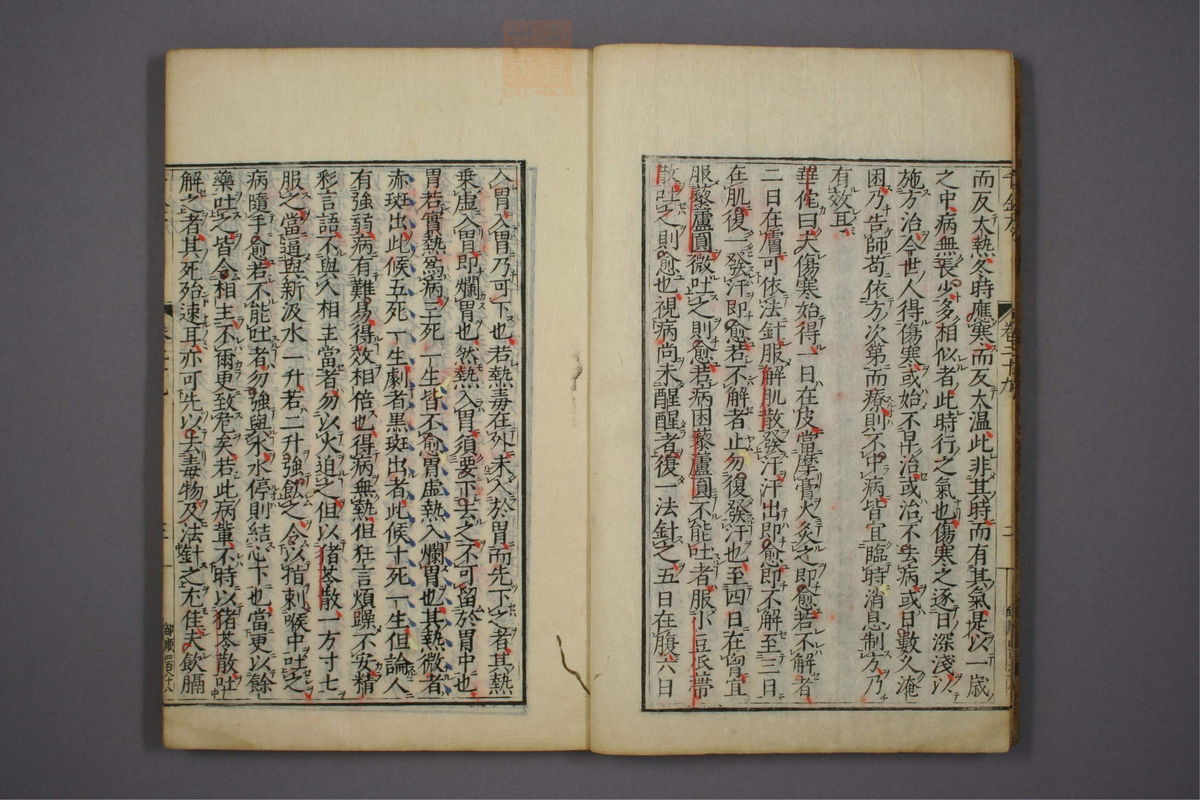 而反太熱冬時應寒而反太温此非其時而有其氣是以一歲
之中病無長少多相似者此時行之氣也傷寒之逐日深淺以
施方治今世人得傷寒或始不早治或治不去病或日數久淹
困乃告師苟依方次第而療則不中病皆宜臨時消息制方乃
有效耳
華佗曰夫傷寒始得一日在皮當摩膏火灸之即愈若不解者
二日在膚可依法針服解肌散發汗汗出即愈即不解至三日
在肌復一發汗即愈若不解者止勿復發汗也至四日在胷宜
服藜蘆圓微吐之則愈若病困藜蘆圓不能吐者服小豆瓜蒂
散吐之則愈也視病尚未醒醒者復一法針之五日在腹六日
入胃入胃乃可下也若熱毒在外未入於胃而先下之者其熱
乗虚入胃即爛胃也然熱入胃須要下去之不可留於胃中也
胃若實熱爲病三死一生皆不愈胃虚熱入爛胃也其熱微者
赤斑出此候五死一生劇者黒斑出者此候十死一生但論人
有強弱病有難易得效相倍也得病無熱但狂言煩躁不安精
彩言語不與人相主當者勿以火迫之但以猪苓散一方寸七
服之當逼與新汲水一升若二升強飲之令以指刺喉中吐之
病隨手愈若不能吐者勿強與水水停則結心下也當更以餘
藥吐之皆令相主不爾更致危矣若此病軰不時以猪苓散吐
解之者其死殆速耳亦可先以去毒物及法針之尤佳夫飲膈